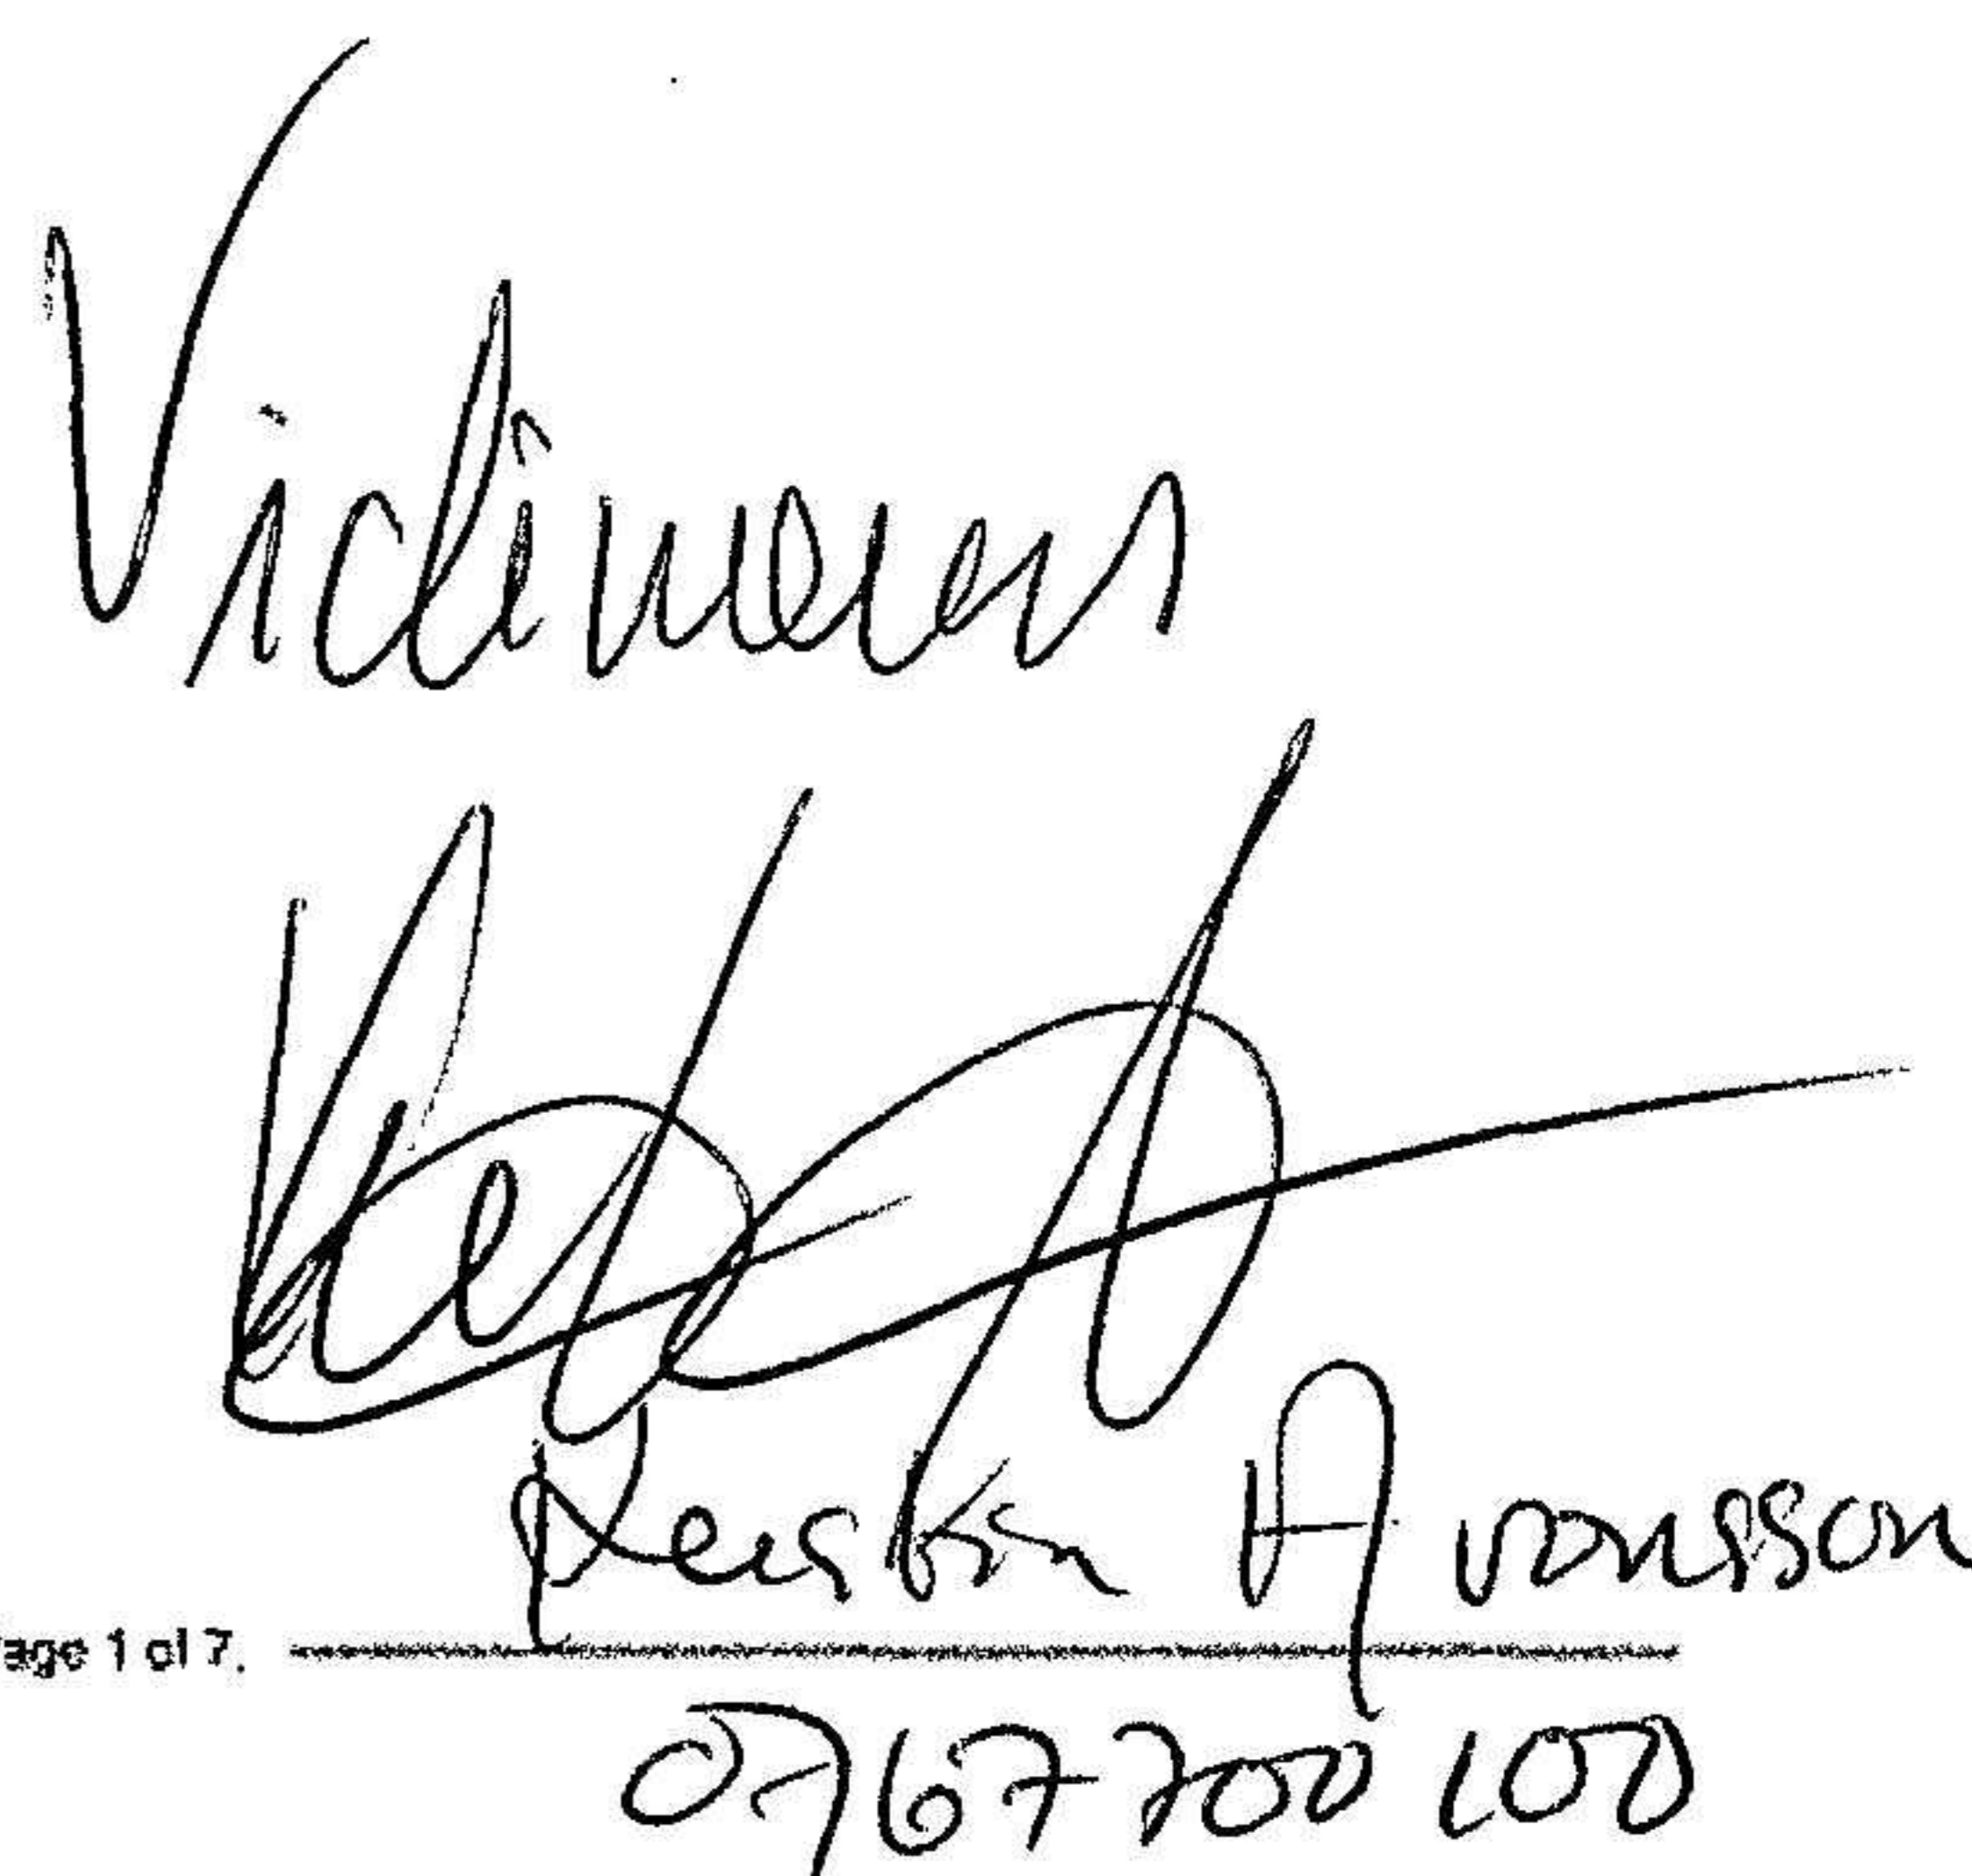 Vidimeras
Kerstin Aronsson
age 1 of 7.
0767 200 100